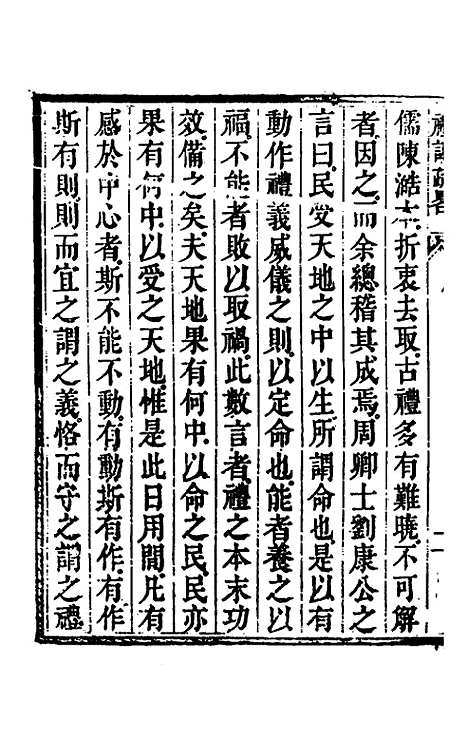 儒陳澔本折衷去取古禮多有難曉不可解
者因之而余總稽其成焉周卿士劉康公之
言曰民受天地之中以生所謂命也是以有
動作禮義威儀之則以定命也能者養之以
福不能者敗以取禍此數言者禮之本末功
效備之矣夫天地果有何中以命之民民亦
果有何中以受之天地惟是此日用間凡有
感於中心者斯不能不動有動斯有作有作
斯有則則而宜之謂之義恪而守之謂之禮